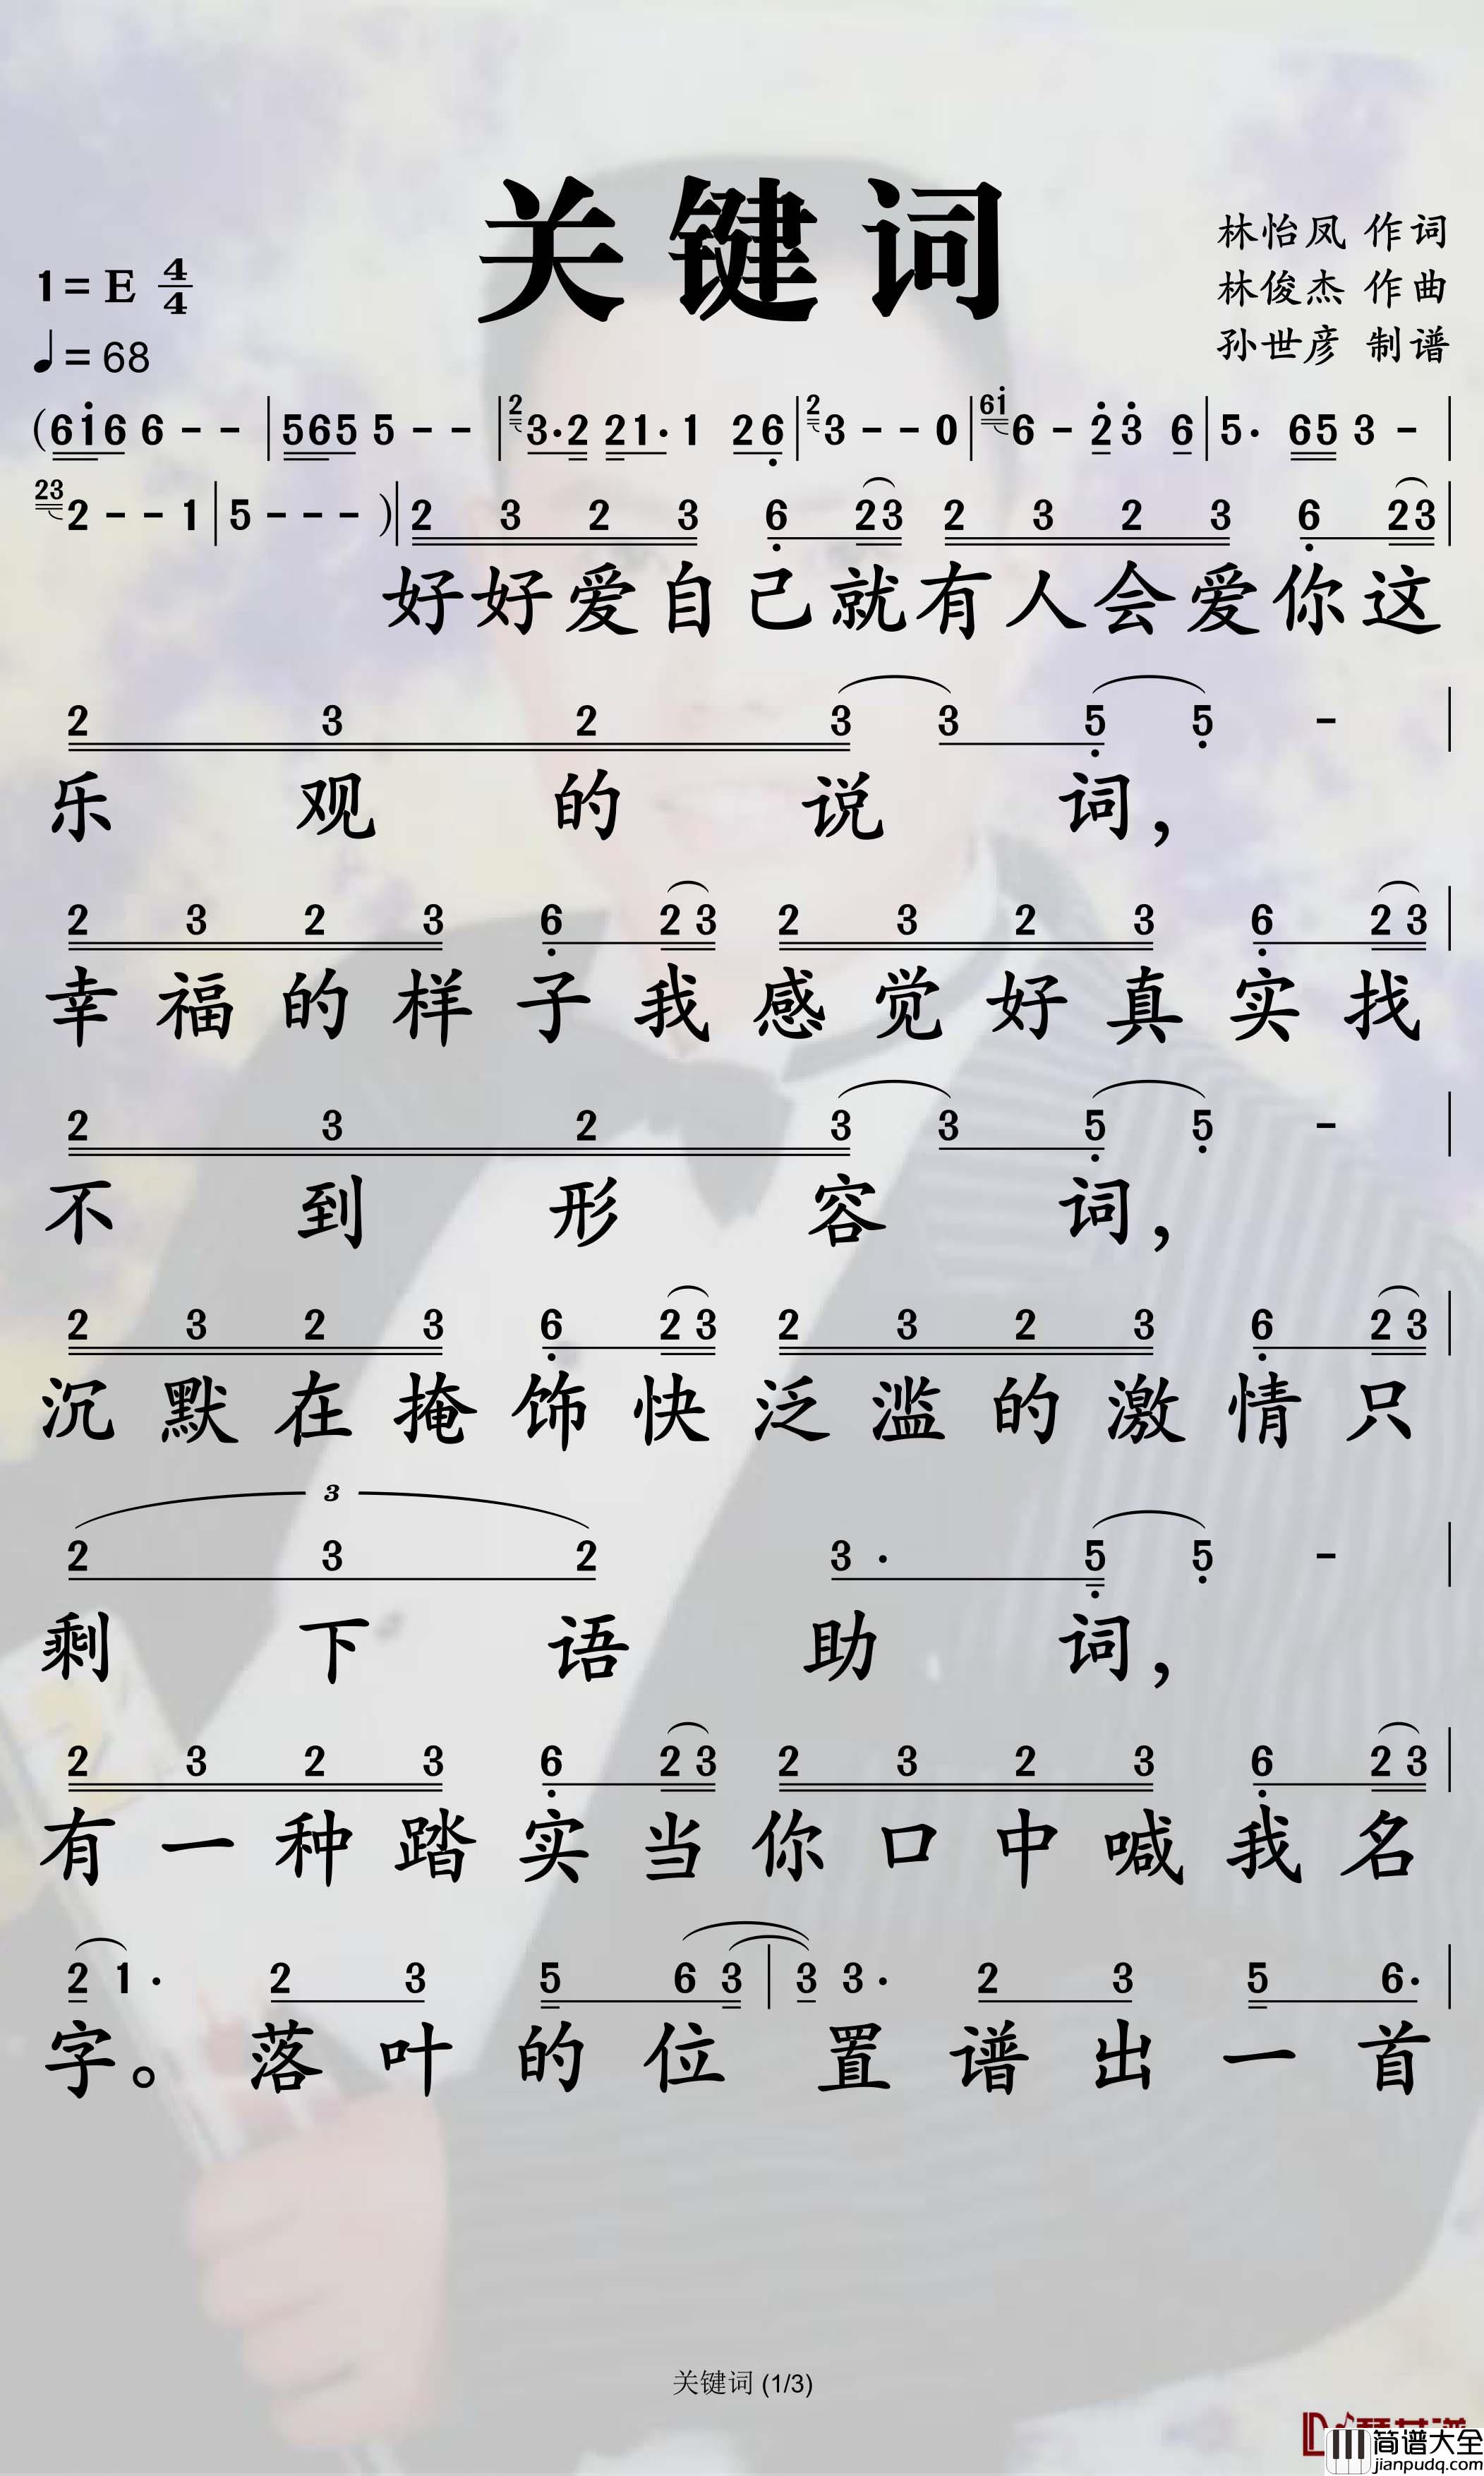 关键词
林怡凤 作词
林俊杰 作曲
孙世彦 制谱
1=E 4/4
♩=68
(6i6 6 - - | 565 5 - - | 2 3·2 21· 1 26 | 2 3 - - 0 | 6i 6 - 23 6 | 5· 65 3 - |
23 2 - - 1 | 5 - - - ) | 2 3 2 3 6 23 2 3 2 3 6 23 |
好好爱自己就有人会爱你这
2 3 2 3 3 5 5 - |
乐观的说词，
2 3 2 3 6 2 3 2 3 2 3 6 2 3 |
幸福的样子我感觉好真实找
2 3 2 3 3 5 5 - |
不到形容词，
2 3 2 3 6 2 3 2 3 2 3 6 2 3 |
沉默在掩饰快泛滥的激情只
3
2 3 2 3· 5 5 - |
剩下语助词，
2 3 2 3 6 2 3 2 3 2 3 6 2 3 |
有一种踏实当你口中喊我名
2 1· 2 3 5 6 3 | 3 3· 2 3 5 6· |
字。落叶的位置谱出一首
关键词 (1/3)
简谱大全
jianpudq.com